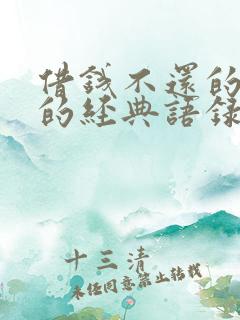 借錢不還的
的經典語錄
十三清
未经同意禁止转载